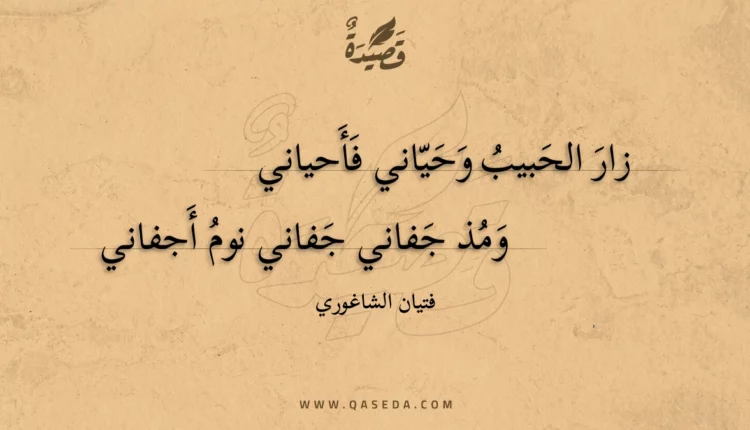 قَصِيدَةٌ
زارَ الحَبيبُ وَحَيّاني فَأَحياني
وَمُذ جَفاني جَفاني نومُ أَجفاني
فتيان الشاغوري
WWW.QASEDA.COM